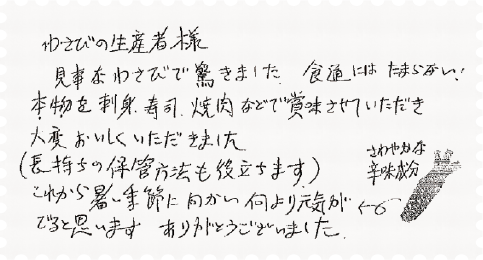 わさびの生産者様
見事なわさびで驚きました。食通にはたまらない！
本物を刺身、寿司、焼肉などで賞味させていただき
大変おいしくいただきました
(長持ちの保管方法も役立ちます)
これから暑い季節に向かい何より元気が
でると思います ありがとうございました。
さわやかな
辛味成分